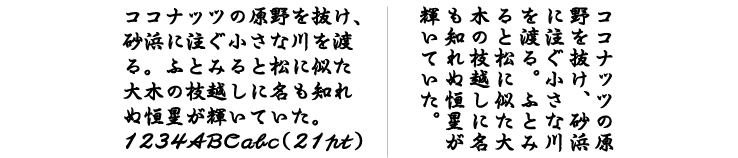 ココナッツの原野を抜け、
砂浜に注ぐ小さな川を渡
る。ふとみると松に似た
大木の枝越しに名も知れ
ぬ恒星が輝いていた。
1234ABCabc(21pt)
ココナッツの原
野を抜け、砂浜
に注ぐ小さな川
を渡る。ふとみ
ると松に似た大
木の枝越しに名
も知れぬ恒星が
輝いていた。